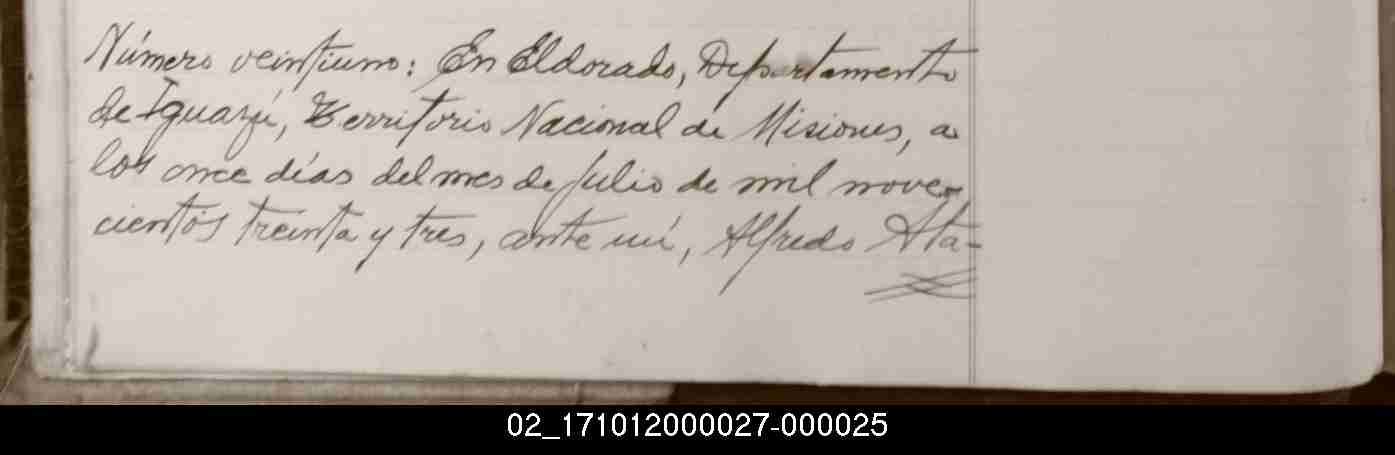 Número veintiuno: En Eldorado, Departamento
de Iguazú, Territorio Nacional de Misiones, a
los once días del mes de Julio de mil nove-
cientos treinta y tres, ante mí, Alfredo Ata-
02_171012000027-000025